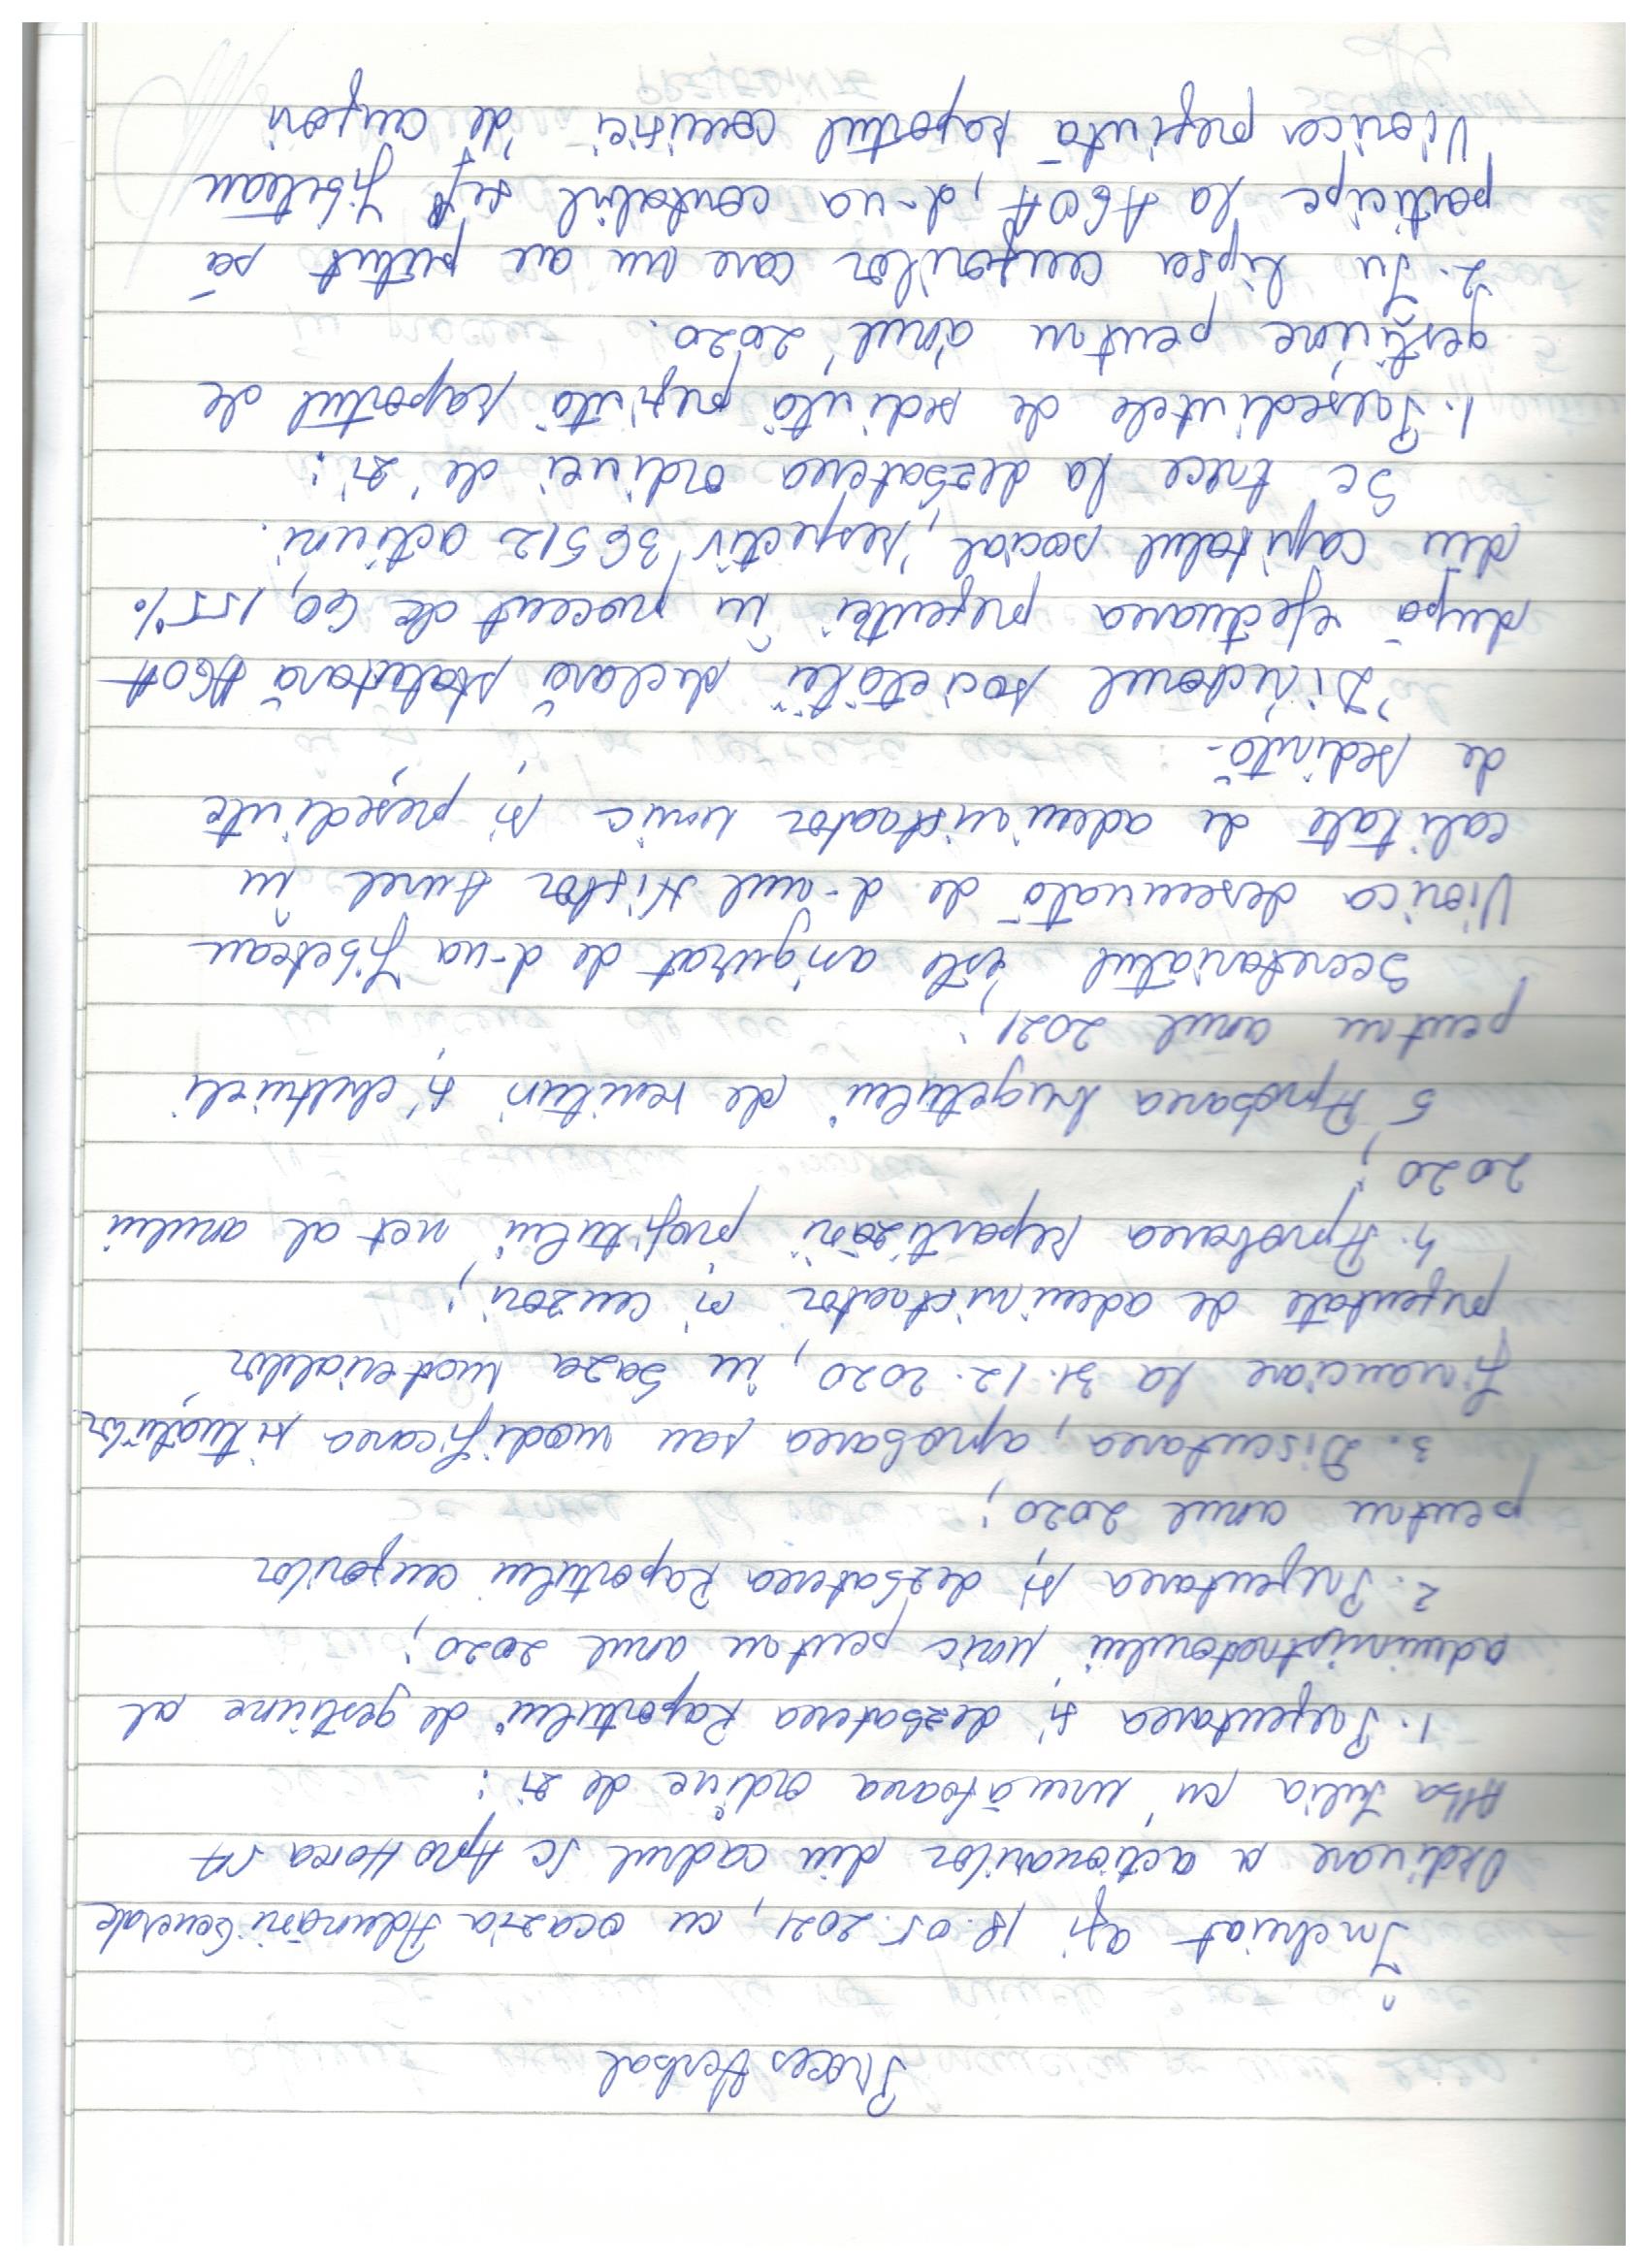 Proces Verbal
Încheiat azi 18.05.2021, cu ocazia Adunării Generale
Ordinare a acționarilor din cadrul SC Apro Horea SA
Alba Iulia cu următoarea ordine de zi:
1. Prezentarea și dezbaterea Raportului de gestiune al
administratorului unic pentru anul 2020;
2. Prezentarea și dezbaterea Raportului cenzorilor
pentru anul 2020;
3. Discutarea, aprobarea sau modificarea situațiilor
financiare la 31.12.2020, în baza materialelor
prezentate de administrator și cenzori;
4. Aprobarea repartizării profitului net al anului
2020;
5 Aprobarea bugetului de venituri și cheltuieli
pentru anul 2021;
Secretariatul este asigurat de d-na
Viorica desemnată de d-nul Nistor Aurel în
calitate de administrator unic și președinte
de ședință.
Directorul societății declară statutară AGOA
după efectuarea prezenței în procent de 60,155%
din capitalul social, respectiv 36512 acțiuni.
Se trece la dezbaterea ordinei de zi:
1. Președintele de ședință prezintă raportul de
gestiune pentru anul 2020.
2. În lipsa cenzorilor care nu au putut să
participe la AGOA, d-na contabil șef
Viorica prezintă raportul comisiei de cenzori